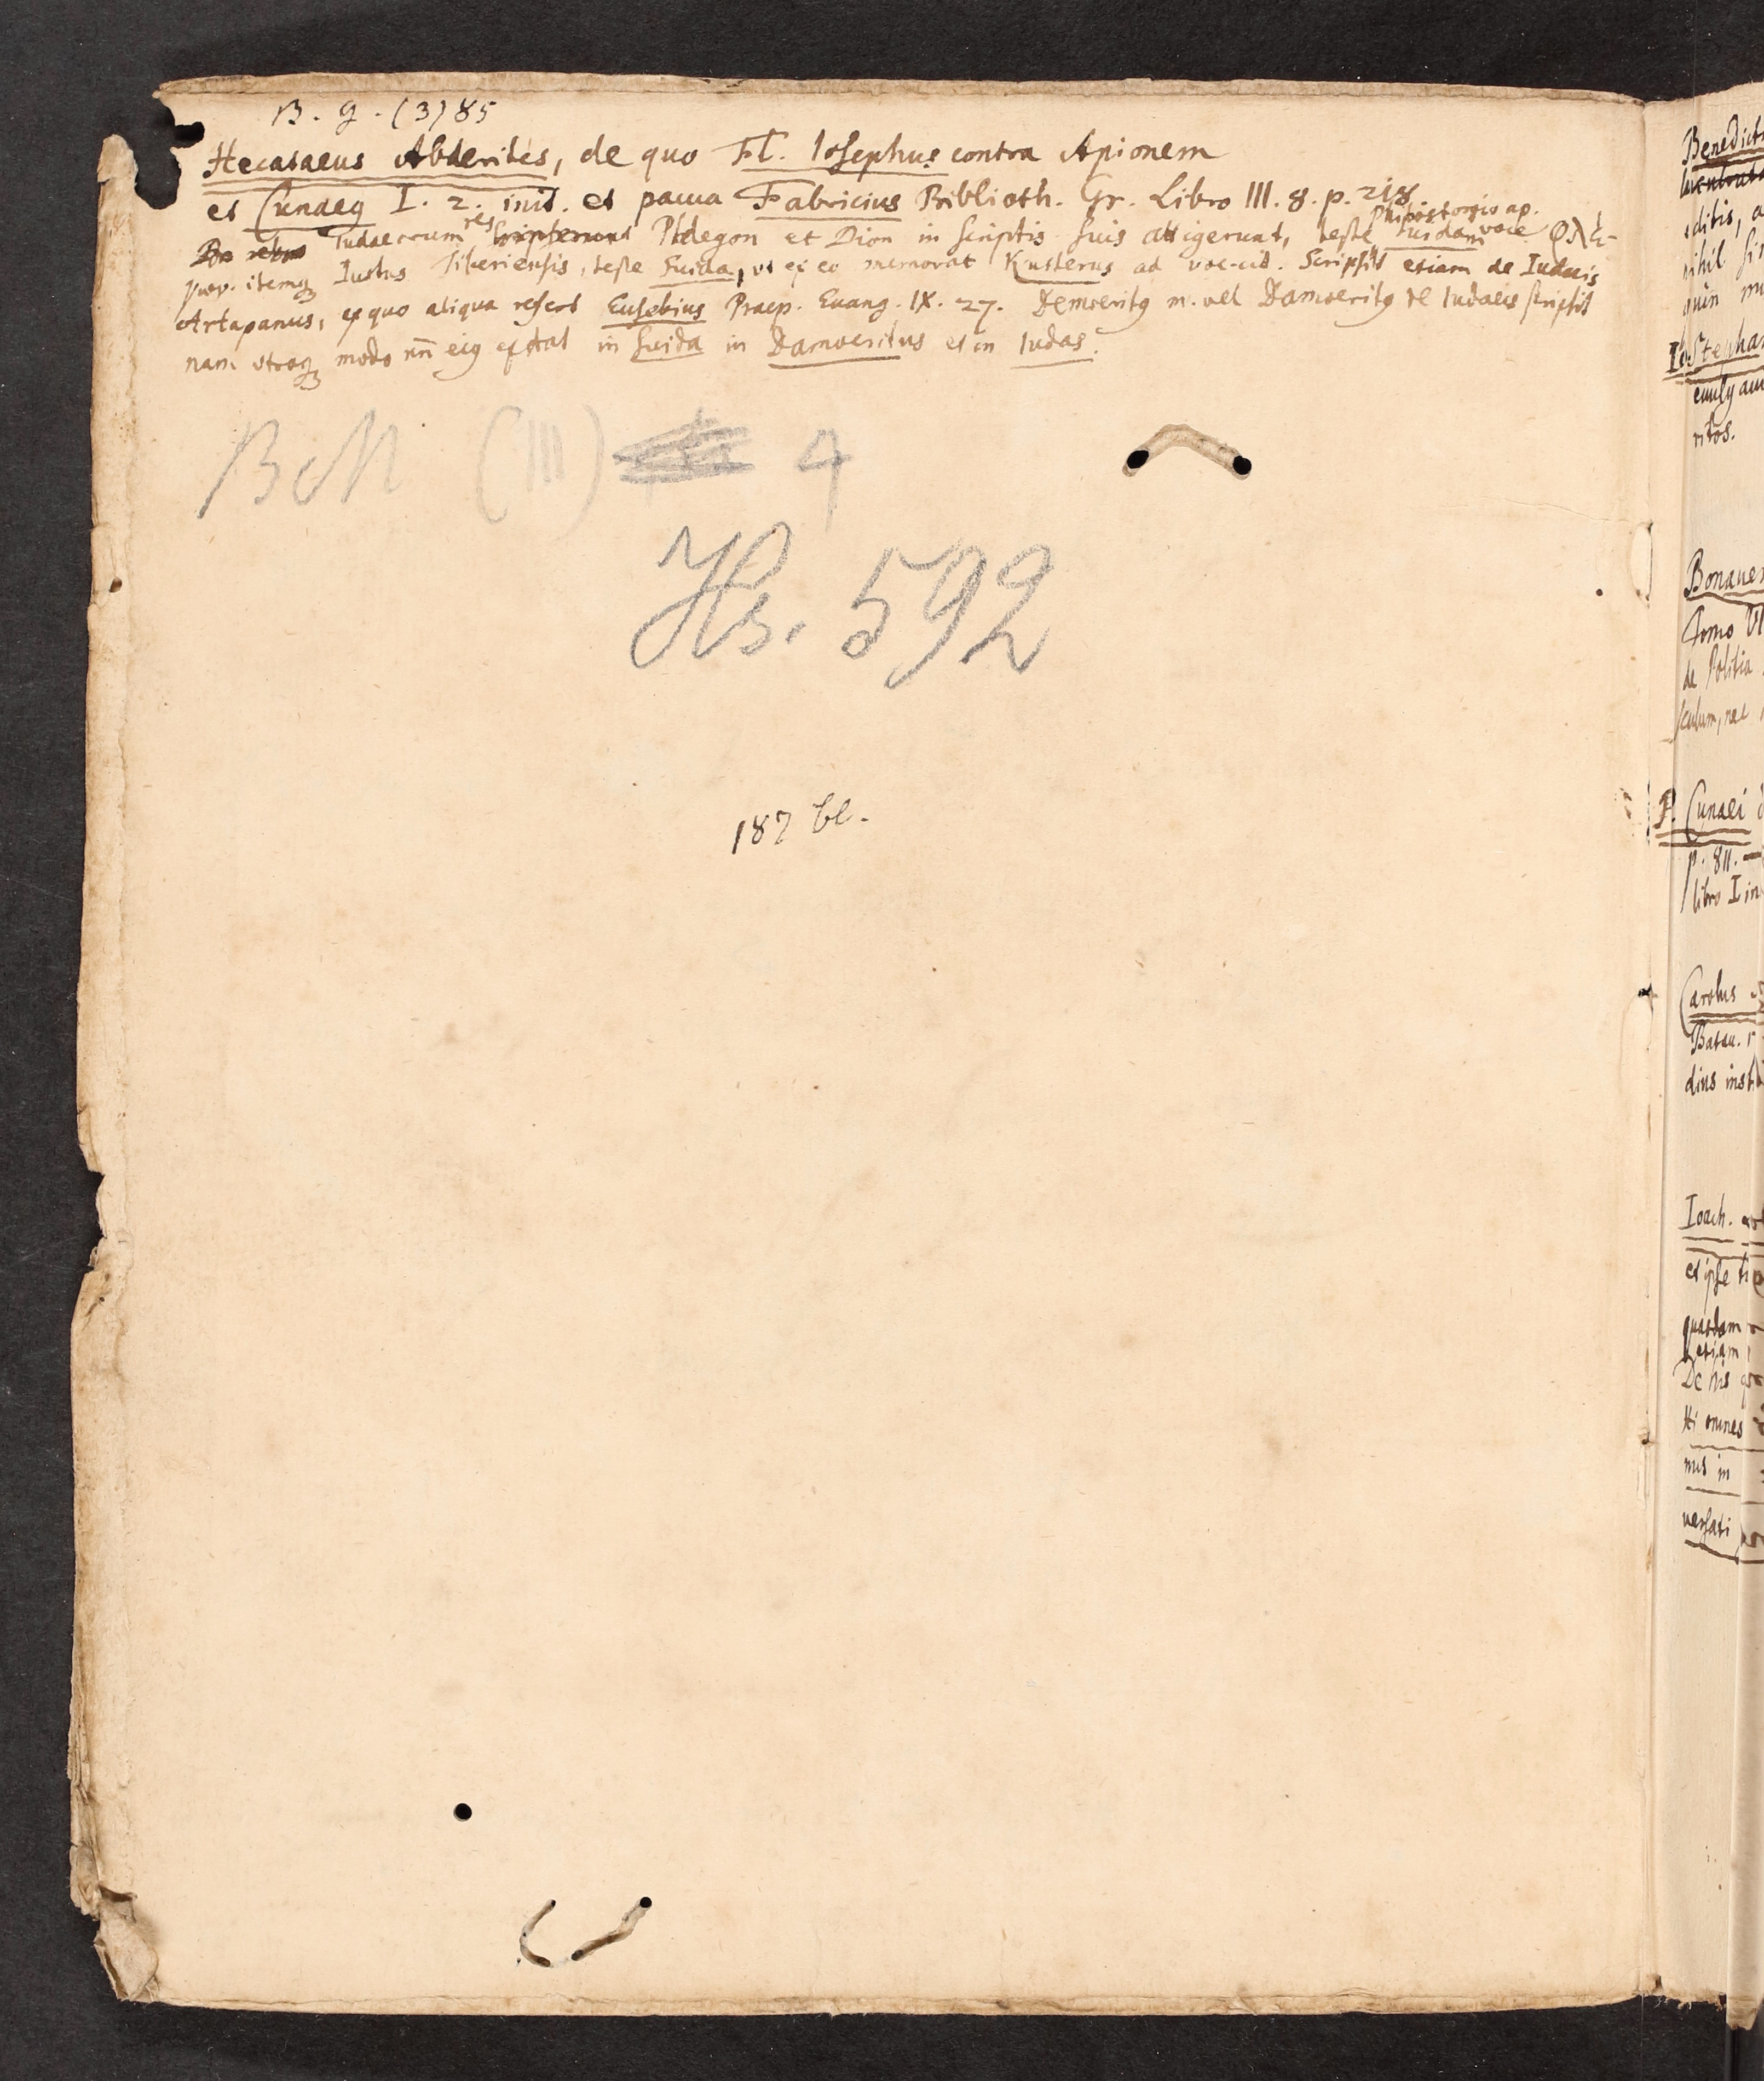 B. g. (3) 85
Hecataeus Abderites, de quo Fl. Iosephus contra Apionem
et Cunaeq I. 2. init. et pauca Fabricius Biblioth. Gr. Libro III. 8. p. 218
Philostorgio ap.
De rebus Iudaeorum res scripserunt Phlegon et Dion in scriptis suis attigerunt, teste Suidam voce Φλέ-
γων. itemq Iustus Tiberiensis, teste Suida, ut ex eo memorat Kusterus ad voc. cit. Scripsit etiam de Iudaeis
Artapanus, ex quo aliqua refert Eusebius Praep. Euang. IX. 27. Democritq n. vel Damocritq de Iudaeis scripsit
nam utroq modo nn eiq exstat in Suida in Damocritus et in Iudas.
BM (III) 4
Hs. 592
187 bl.
Benedict
editis,
nihil
quin
Io Stepha
ritos.
Bonaven
Tomo VI
de Politia
P. Cunaei
p. 811. —
libro I in
Carolus
Batau.
dius inst
Ioach.
et ipse
quaedam
etiam
De his
Hi omnes
mus in
uersati